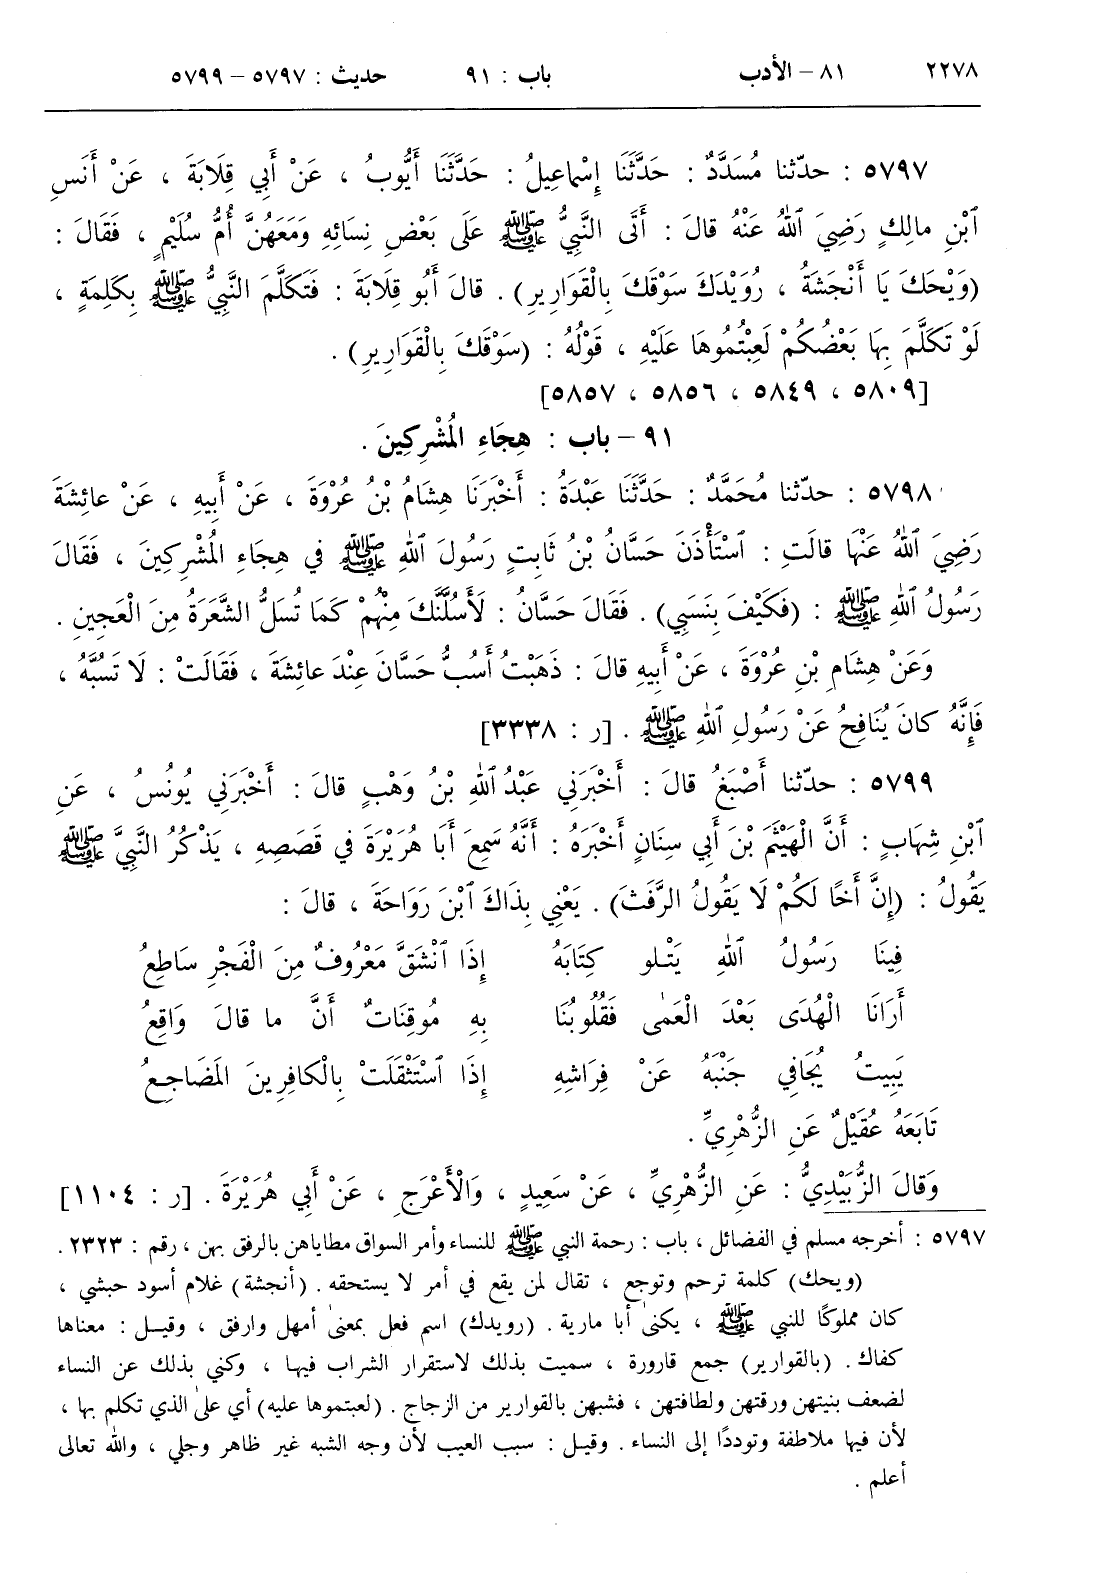 ٢٢٧٨ ٨١ – الأدب باب : ٩١ حديث : ٥٧٩٧ – ٥٧٩٩
٥٧٩٧ : حدّثنا مُسَدَّدٌ : حَدَّثَنَا إِسْمَاعِيلُ : حَدَّثَنَا أَيُّوبُ ، عَنْ أَبِي قِلَابَةَ ، عَنْ أَنَسِ
ٱبْنِ مالِكٍ رَضِيَ ٱللهُ عَنْهُ قالَ : أَتَى النَّبِيُّ ﷺ عَلَى بَعْضِ نِسَائِهِ وَمَعَهُنَّ أُمُّ سُلَيْمٍ ، فَقَالَ :
(وَيْحَكَ يَا أَنْجَشَةُ ، رُوَيْدَكَ سَوْقَكَ بِالْقَوَارِيرِ) . قالَ أَبُو قِلَابَةَ : فَتَكَلَّمَ النَّبِيُّ ﷺ بِكَلِمَةٍ ،
لَوْ تَكَلَّمَ بِهَا بَعْضُكُمْ لَعِبْتُمُوهَا عَلَيْهِ ، قَوْلُهُ : (سَوْقَكَ بِالْقَوَارِيرِ) .
[٥٨٠٩ ، ٥٨٤٩ ، ٥٨٥٦ ، ٥٨٥٧]
٩١ – باب : هِجَاءِ الْمُشْرِكِينَ .
٥٧٩٨ : حدّثنا مُحَمَّدٌ : حَدَّثَنَا عَبْدَةُ : أَخْبَرَنَا هِشَامُ بْنُ عُرْوَةَ ، عَنْ أَبِيهِ ، عَنْ عائِشَةَ
رَضِيَ ٱللهُ عَنْهَا قالَتِ : ٱسْتَأْذَنَ حَسَّانُ بْنُ ثَابِتٍ رَسُولَ ٱللهِ ﷺ في هِجَاءِ الْمُشْرِكِينَ ، فَقَالَ
رَسُولُ ٱللهِ ﷺ : (فَكَيْفَ بِنَسَبِي) . فَقَالَ حَسَّانُ : لَأَسُلَّنَّكَ مِنْهُمْ كَمَا تُسَلُّ الشَّعَرَةُ مِنَ الْعَجِينِ .
وَعَنْ هِشَامِ بْنِ عُرْوَةَ ، عَنْ أَبِيهِ قالَ : ذَهَبْتُ أَسُبُّ حَسَّانَ عِنْدَ عائِشَةَ ، فَقَالَتْ : لَا تَسُبَّهُ ،
فَإِنَّهُ كانَ يُنَافِحُ عَنْ رَسُولِ ٱللهِ ﷺ . [ر : ٣٣٣٨]
٥٧٩٩ : حدّثنا أَصْبَغُ قالَ : أَخْبَرَنِي عَبْدُ ٱللهِ بْنُ وَهْبٍ قالَ : أَخْبَرَنِي يُونُسُ ، عَنِ
ٱبْنِ شِهَابٍ : أَنَّ الْهَيْثَمَ بْنَ أَبِي سِنَانٍ أَخْبَرَهُ : أَنَّهُ سَمِعَ أَبَا هُرَيْرَةَ في قَصَصِهِ ، يَذْكُرُ النَّبِيَّ ﷺ
يَقُولُ : (إِنَّ أَخًا لَكُمْ لَا يَقُولُ الرَّفَثَ) . يَعْنِي بِذَاكَ ٱبْنَ رَوَاحَةَ ، قالَ :
فِينَا رَسُولُ ٱللهِ يَتْلو كِتَابَهُ إِذَا ٱنْشَقَّ مَعْرُوفٌ مِنَ الْفَجْرِ ساطِعُ
أَرَانَا الْهُدَى بَعْدَ الْعَمٰى فَقُلُوبُنَا بِهِ مُوقِنَاتٌ أَنَّ ما قالَ وَاقِعُ
يَبِيتُ يُجَافِي جَنْبَهُ عَنْ فِرَاشِهِ إِذَا ٱسْتَثْقَلَتْ بِالْكافِرِينَ المَضَاجِعُ
تَابَعَهُ عُقَيْلٌ عَنِ الزُّهْرِيِّ .
وَقالَ الزُّبَيْدِيُّ : عَنِ الزُّهْرِيِّ ، عَنْ سَعِيدٍ ، وَالْأَعْرَجِ ، عَنْ أَبِي هُرَيْرَةَ . [ر : ١١٠٤]
٥٧٩٧ : أخرجه مسلم في الفضائل ، باب : رحمة النبي ﷺ للنساء وأمر السواق مطاياهن بالرفق بهن ، رقم : ٢٣٢٣ .
(ويحك) كلمة ترحم وتوجع ، تقال لمن يقع في أمر لا يستحقه . (أنجشة) غلام أسود حبشي ،
كان مملوكًا للنبي ﷺ ، يكنىٰ أبا مارية . (رويدك) اسم فعل بمعنىٰ أمهل وارفق ، وقيل : معناها
كفاك . (بالقوارير) جمع قارورة ، سميت بذلك لاستقرار الشراب فيها ، وكني بذلك عن النساء
لضعف بنيتهن ورقتهن ولطافتهن ، فشبهن بالقوارير من الزجاج . (لعبتموها عليه) أي علىٰ الذي تكلم بها ،
لأن فيها ملاطفة وتوددًا إلى النساء . وقيل : سبب العيب لأن وجه الشبه غير ظاهر وجلي ، والله تعالى
أعلم .